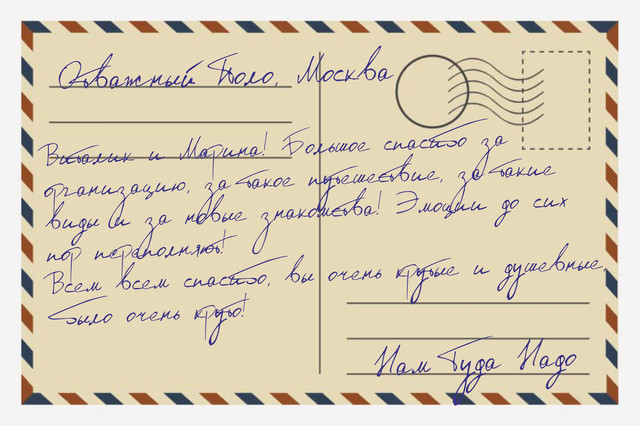 Отважный Поло, Москва
Виталик и Марина! Большое спасибо за
организацию, за такое путешествие, за такие
виды и за новые знакомства! Эмоции до сих
пор переполняют!
Всем всем спасибо, вы очень крутые и душевные,
было очень круто!
Нам Туда Надо